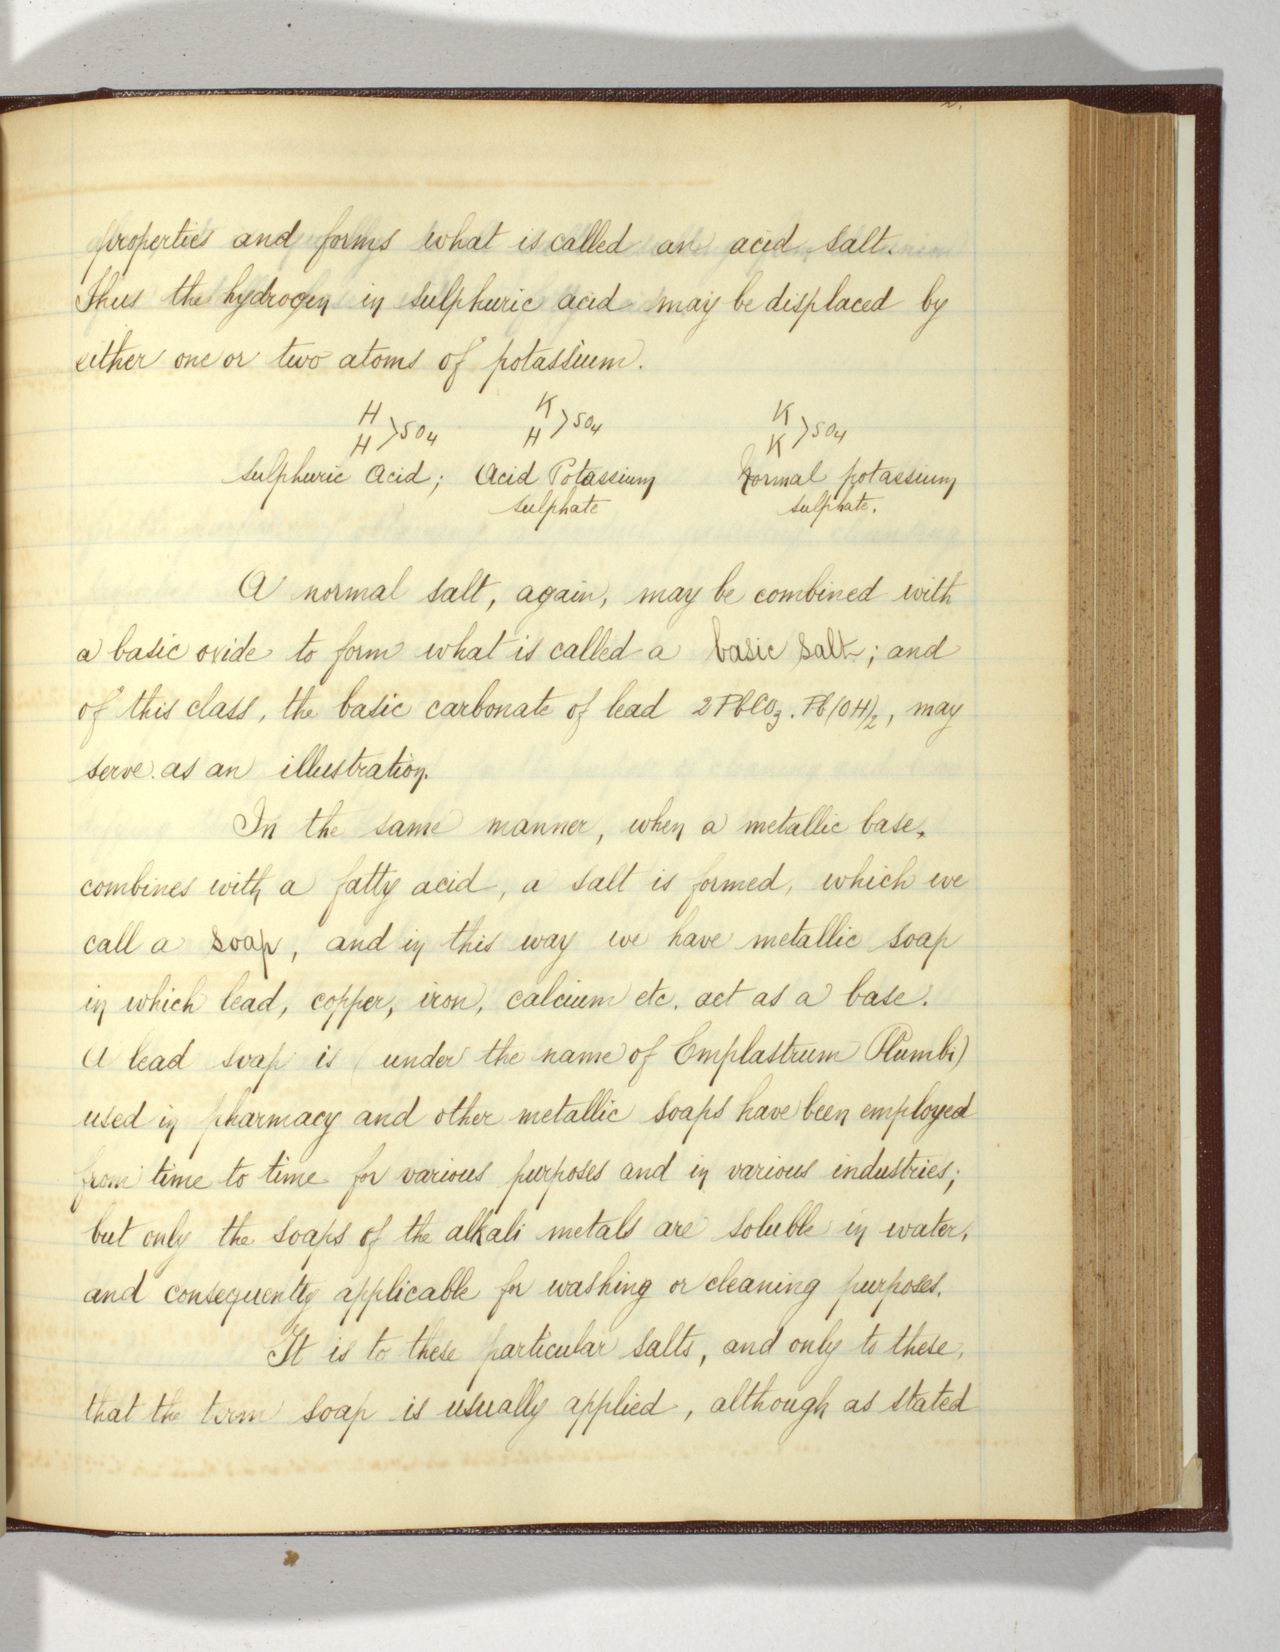 2.
properties and forms what is called an acid salt.
Thus the hydrogen in sulphuric acid may be displaced by
either one or two atoms of potassium.
H K K
H >SO4 H >SO4 K >SO4
Sulphuric Acid; Acid Potassium Normal potassium
sulphate sulphate.
A normal salt, again, may be combined with
a basic oxide to form what is called a basic salt; and
of this class, the basic carbonate of lead 2PbCO3.Pb(OH)2, may
serve as an illustration.
In the same manner, when a metallic base,
combines with a fatty acid, a salt is formed, which we
call a soap, and in this way we have metallic soap
in which lead, copper, iron, calcium etc. act as a base.
A lead soap is (under the name of Emplastrum Plumbi)
used in pharmacy and other metallic soaps have been employed
from time to time for various purposes and in various industries;
but only the soaps of the alkali metals are soluble in water,
and consequently applicable for washing or cleaning purposes.
It is to these particular salts, and only to these,
that the term soap is usually applied, although as stated